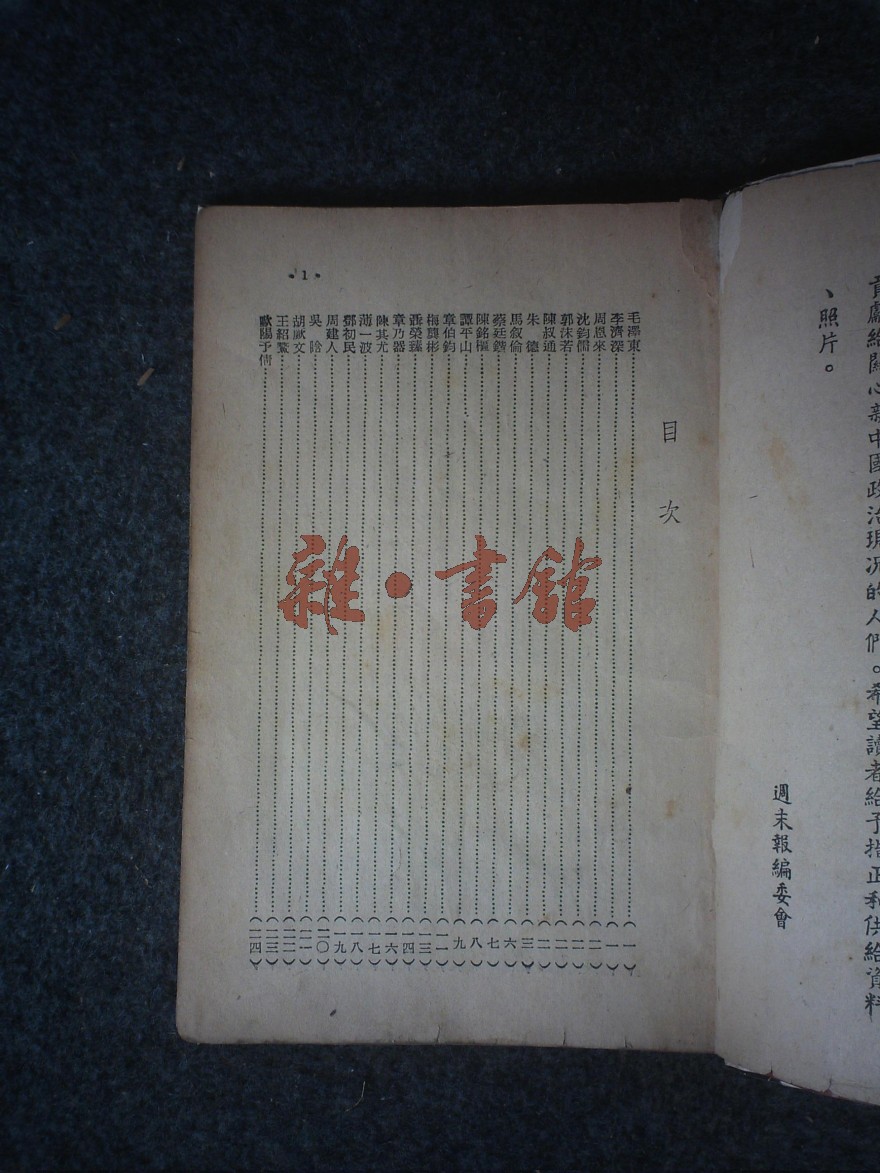 貢獻給關心新中國政治現況的人們。希望讀者給予指正和供給資料
、照片。
週末報編委會
目次
毛澤東……（一）
李濟深……（一）
周恩來……（二）
沈鈞儒……（二）
郭沫若……（二）
陳叔通……（二）
朱德……（三）
馬叙倫……（六）
蔡廷鍇……（七）
陳銘樞……（八）
譚平山……（九）
章伯鈞……（一一）
梅龔彬……（一三）
聶榮臻……（一四）
章乃器……（一六）
陳其尤……（一七）
薄一波……（一八）
鄧初民……（一九）
周建人……（二〇）
吳晗……（二一）
胡厥文……（二二）
王紹鏊……（二三）
歐陽予倩……（二四）
·1·
雜·書館